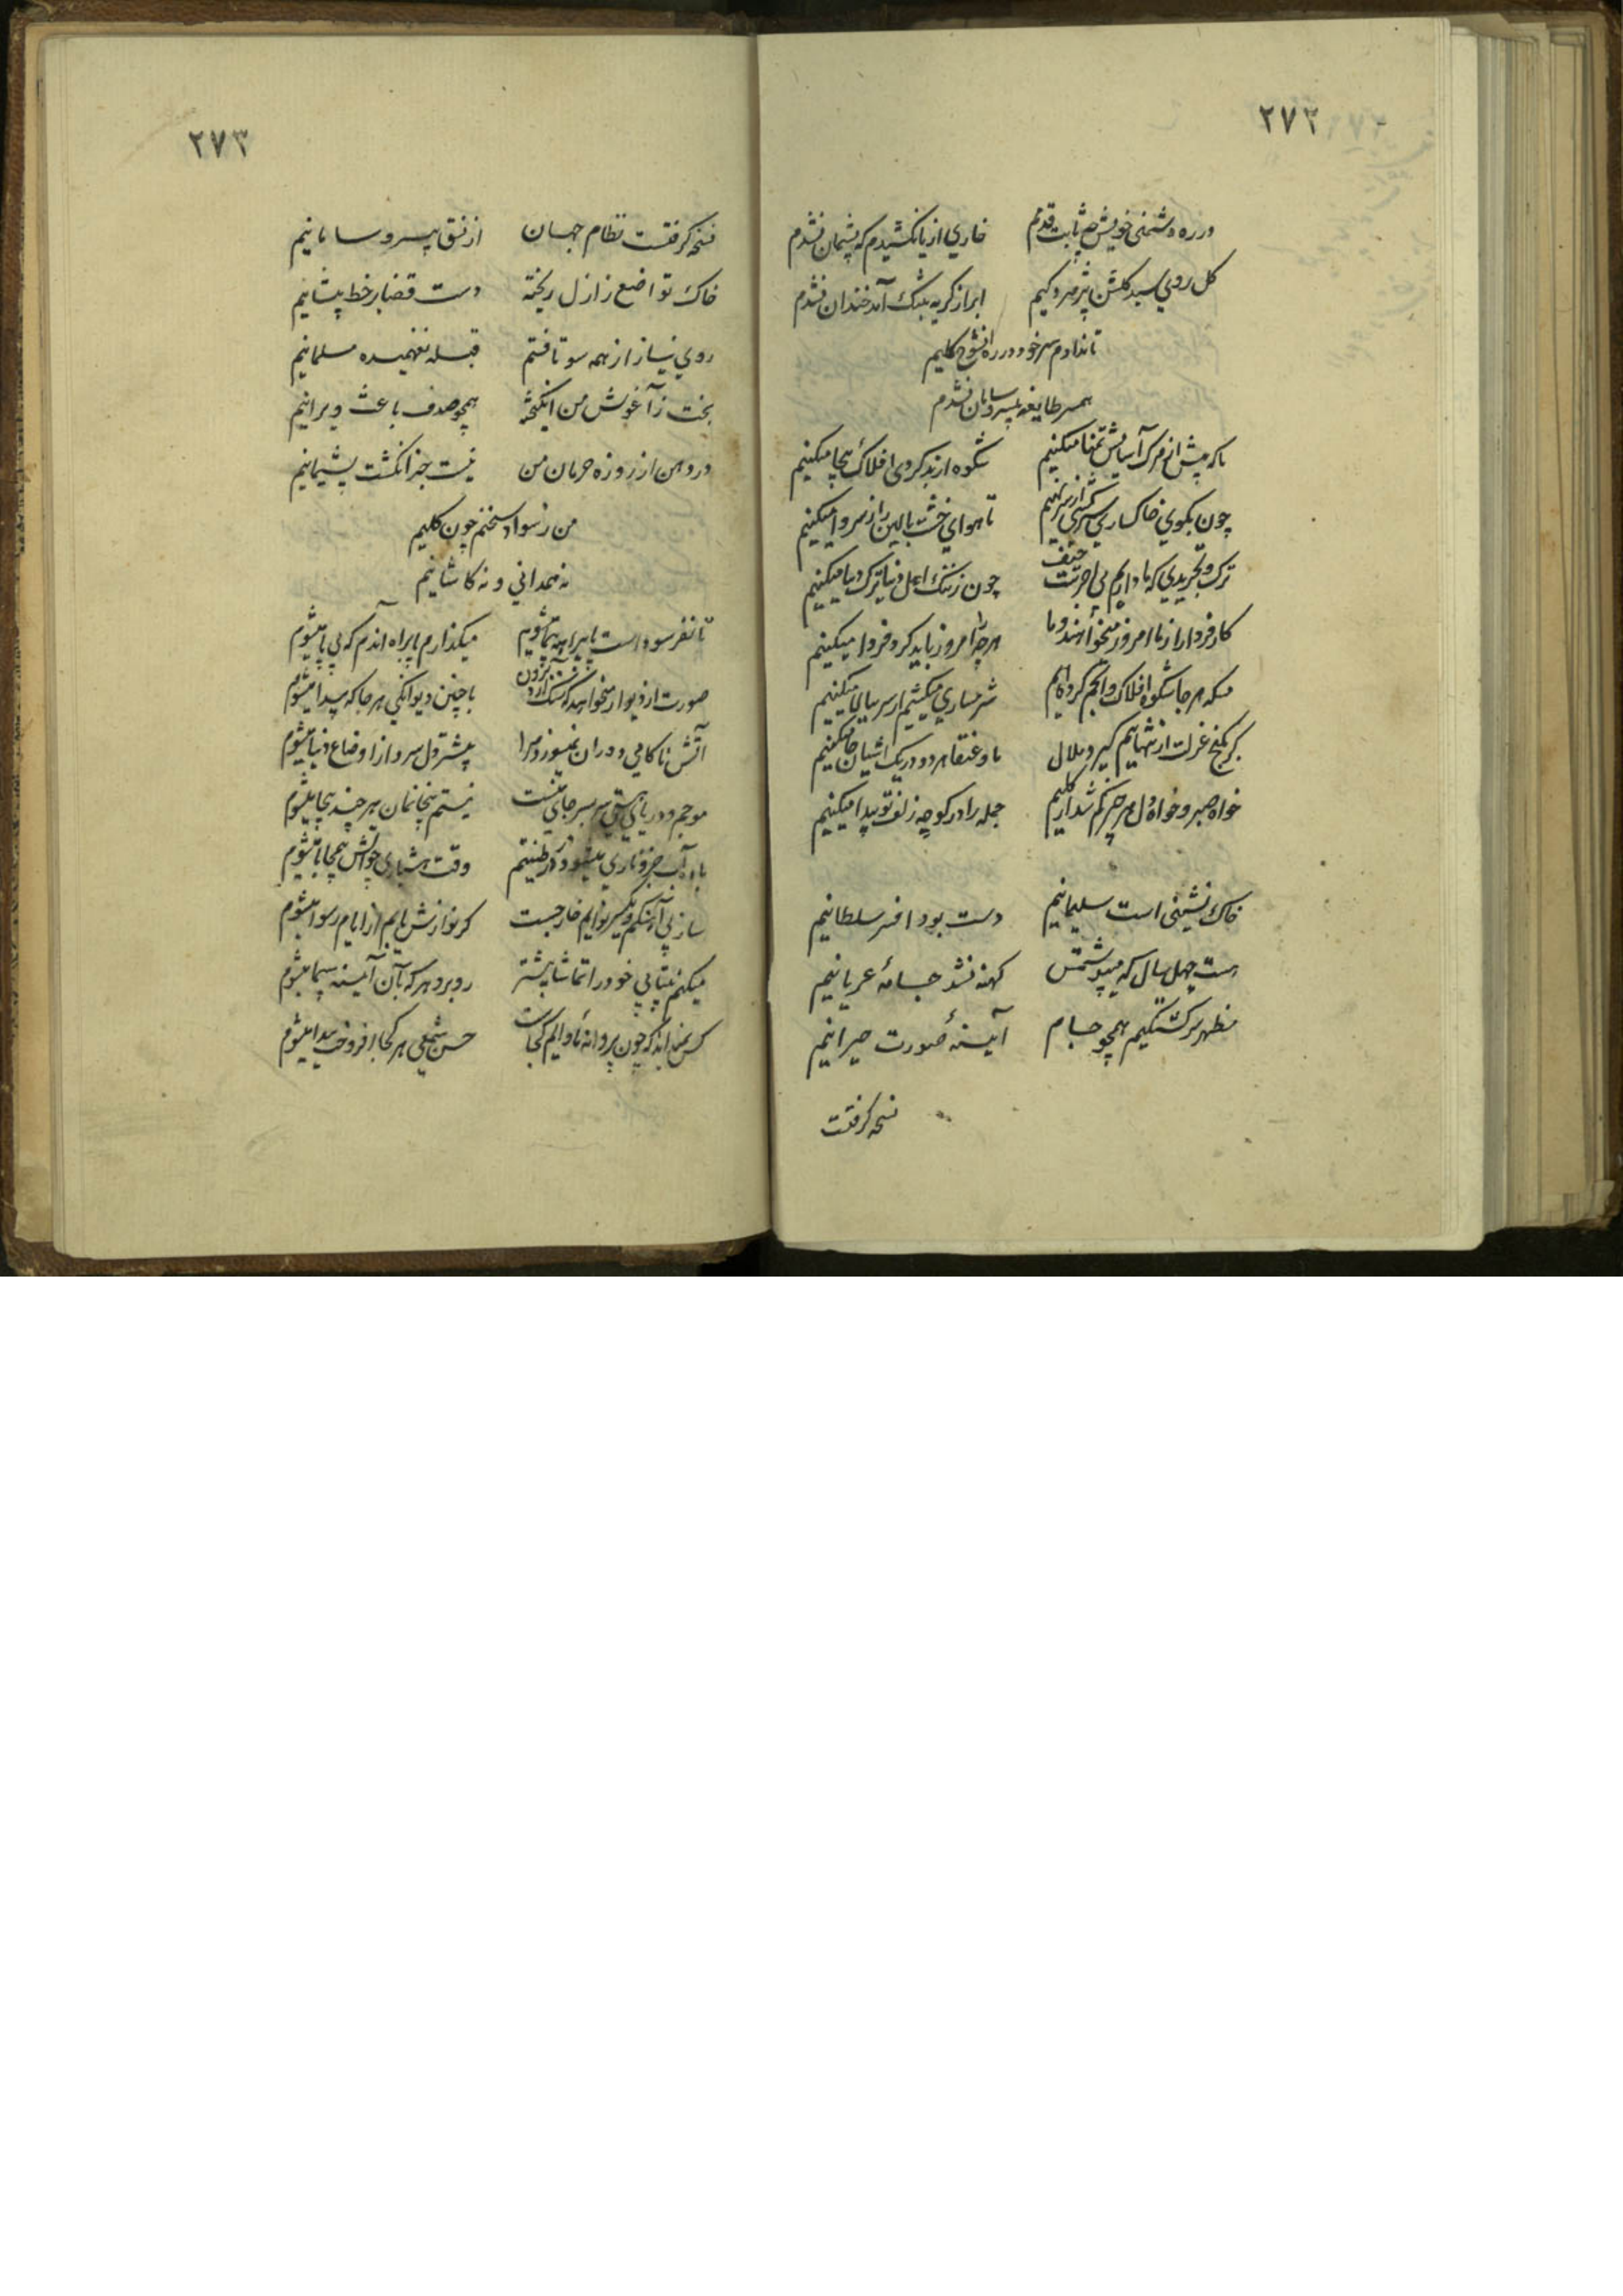 ٢٧٢
در ره دشمنی خویش چه ثابت قدمم خاري از پا نکشیدم که پشیمان نشدم
کل روي سبد کلشن پژمردکیم ابر از کریه بتنک آمد خندان نشدم
تا ندادم سر خود در ره کلیم
همسر طایفه بیسر و سامان نشدم
ما که پیش از مرک آسایش تمنا میکنیم شکوه از بد کردی افلاک بیجا میکنیم
چون بکوي خاکساري سرکشي از سر نهیم تا هواي خشت بالین را ز سر وا میکنیم
ترک و تجریدي که ما داریم بی اجرست حیف چون ز ننک اهل دنیا ترک دنیا میکنیم
کار فردا را ز ما امروز میخواهند و ما هر چه را امروز باید کرد فردا میکنیم
بسکه هر جا شکوه افلاک و انجم کرده ایم شرمساري میکشیم ار سر ببالا میکنیم
کر بکنج عزلت از تنهاییم کیرد ملال ما و عنقا هر دو در یک آشیان جا میکنیم
خواه صبر و خواه دل هر چیز کم شد از کلیم جمله را در کوچه زلف تو پیدا میکنیم
خاک نشینی است سلیمانیم دست بود افسر سلطانیم
هست چهل سال که میپوشمش کهنه نشد جامهٔ عریانیم
مظهر سرکشتکیم همچو جام آینهٔ صورت حیرانیم
نسخه کرفتست
٢٧٣
نسخه کرفتست نظام جهان از نسق بیسر و سامانیم
خاک تواضع ز ازل ریخته دست قضا بر خط پیشانیم
روي نیاز از همه سو تافتم قبله نفهمیده مسلمانیم
بخت ز آغوش من انکیخته همچو صدف باعث ویرانیم
در دهن از روزه حرمان من نیست جز انکشت پشیمانیم
من ز سواد سخنم چون کلیم
نه همدانی و نه کاشانیم
تا نفرسوده است پا میکذارم پا براه آندم که بی پا میشوم
صورت از دیوار میخواهد که سنک آرد برون با چنین دیوانکي هر جا که پیدا میشوم
آتش ناکامي دوران نمیسوزد مرا بیشتر دل سرد از اوضاع دنیا میشوم
موجم و دریاي هستي سر بسر جاي منست نیستم بیخانمان هر چند بیجا میشوم
وقت هشیاري
ساز بي آهنکم و یکسر نوایم خارجست کر نوازش یابم از ایام رسوا میشوم
میکنم بیتابي خود را تماشا بیشتر روبرو هر که بآن آیینه سیما میشوم
کس نمیداند که چون پروانه ماوایم کجاست حسن شمعي هر کجا افروخت پیدا میشوم